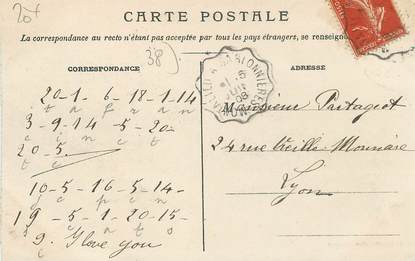 20f
CARTE POSTALE
La correspondance au recto n'étant pas acceptée par tous les pays étrangers, se renseigner
38).
CORRESPONDANCE
ADRESSE
20-1-6-18-1-14
t a f r a n
3-9-14-5-20-
c i n e t
20-5
t e
10-5-16-5-14-
j e p e n
19-5-1-20-15-
s e a t o
9. I love you
i
Monsieur Partageot
24 rue Vieille Monnaie
Lyon